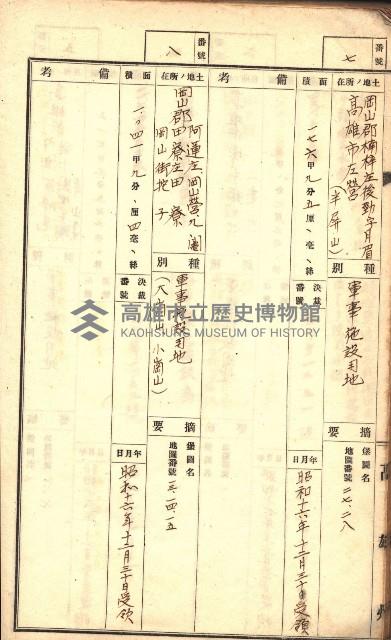 番號
七
土地ノ所在
岡山郡楠梓庄後勁字月眉
高雄市左營
(半屏山)
種別
軍事施設用地
摘要
堡圖名
地圖番號 二七、二八
面積
一七六甲九分五厘、毫、絲
決裁番號
年月日
昭和十六年十二月三十日受領
備考
番號
八
土地ノ所在
阿蓮庄
岡山郡田寮庄田寮
岡山街
種別
軍事施設用地
小崗山)
摘要
堡圖名
地圖番號 一三、一四、一五
面積
一、〇四一甲九分、厘四毫、絲
決裁番號
年月日
昭和十六年十二月三十日受領
備考
高雄市立歷史博物館
KAOHSIUNG MUSEUM OF HISTORY